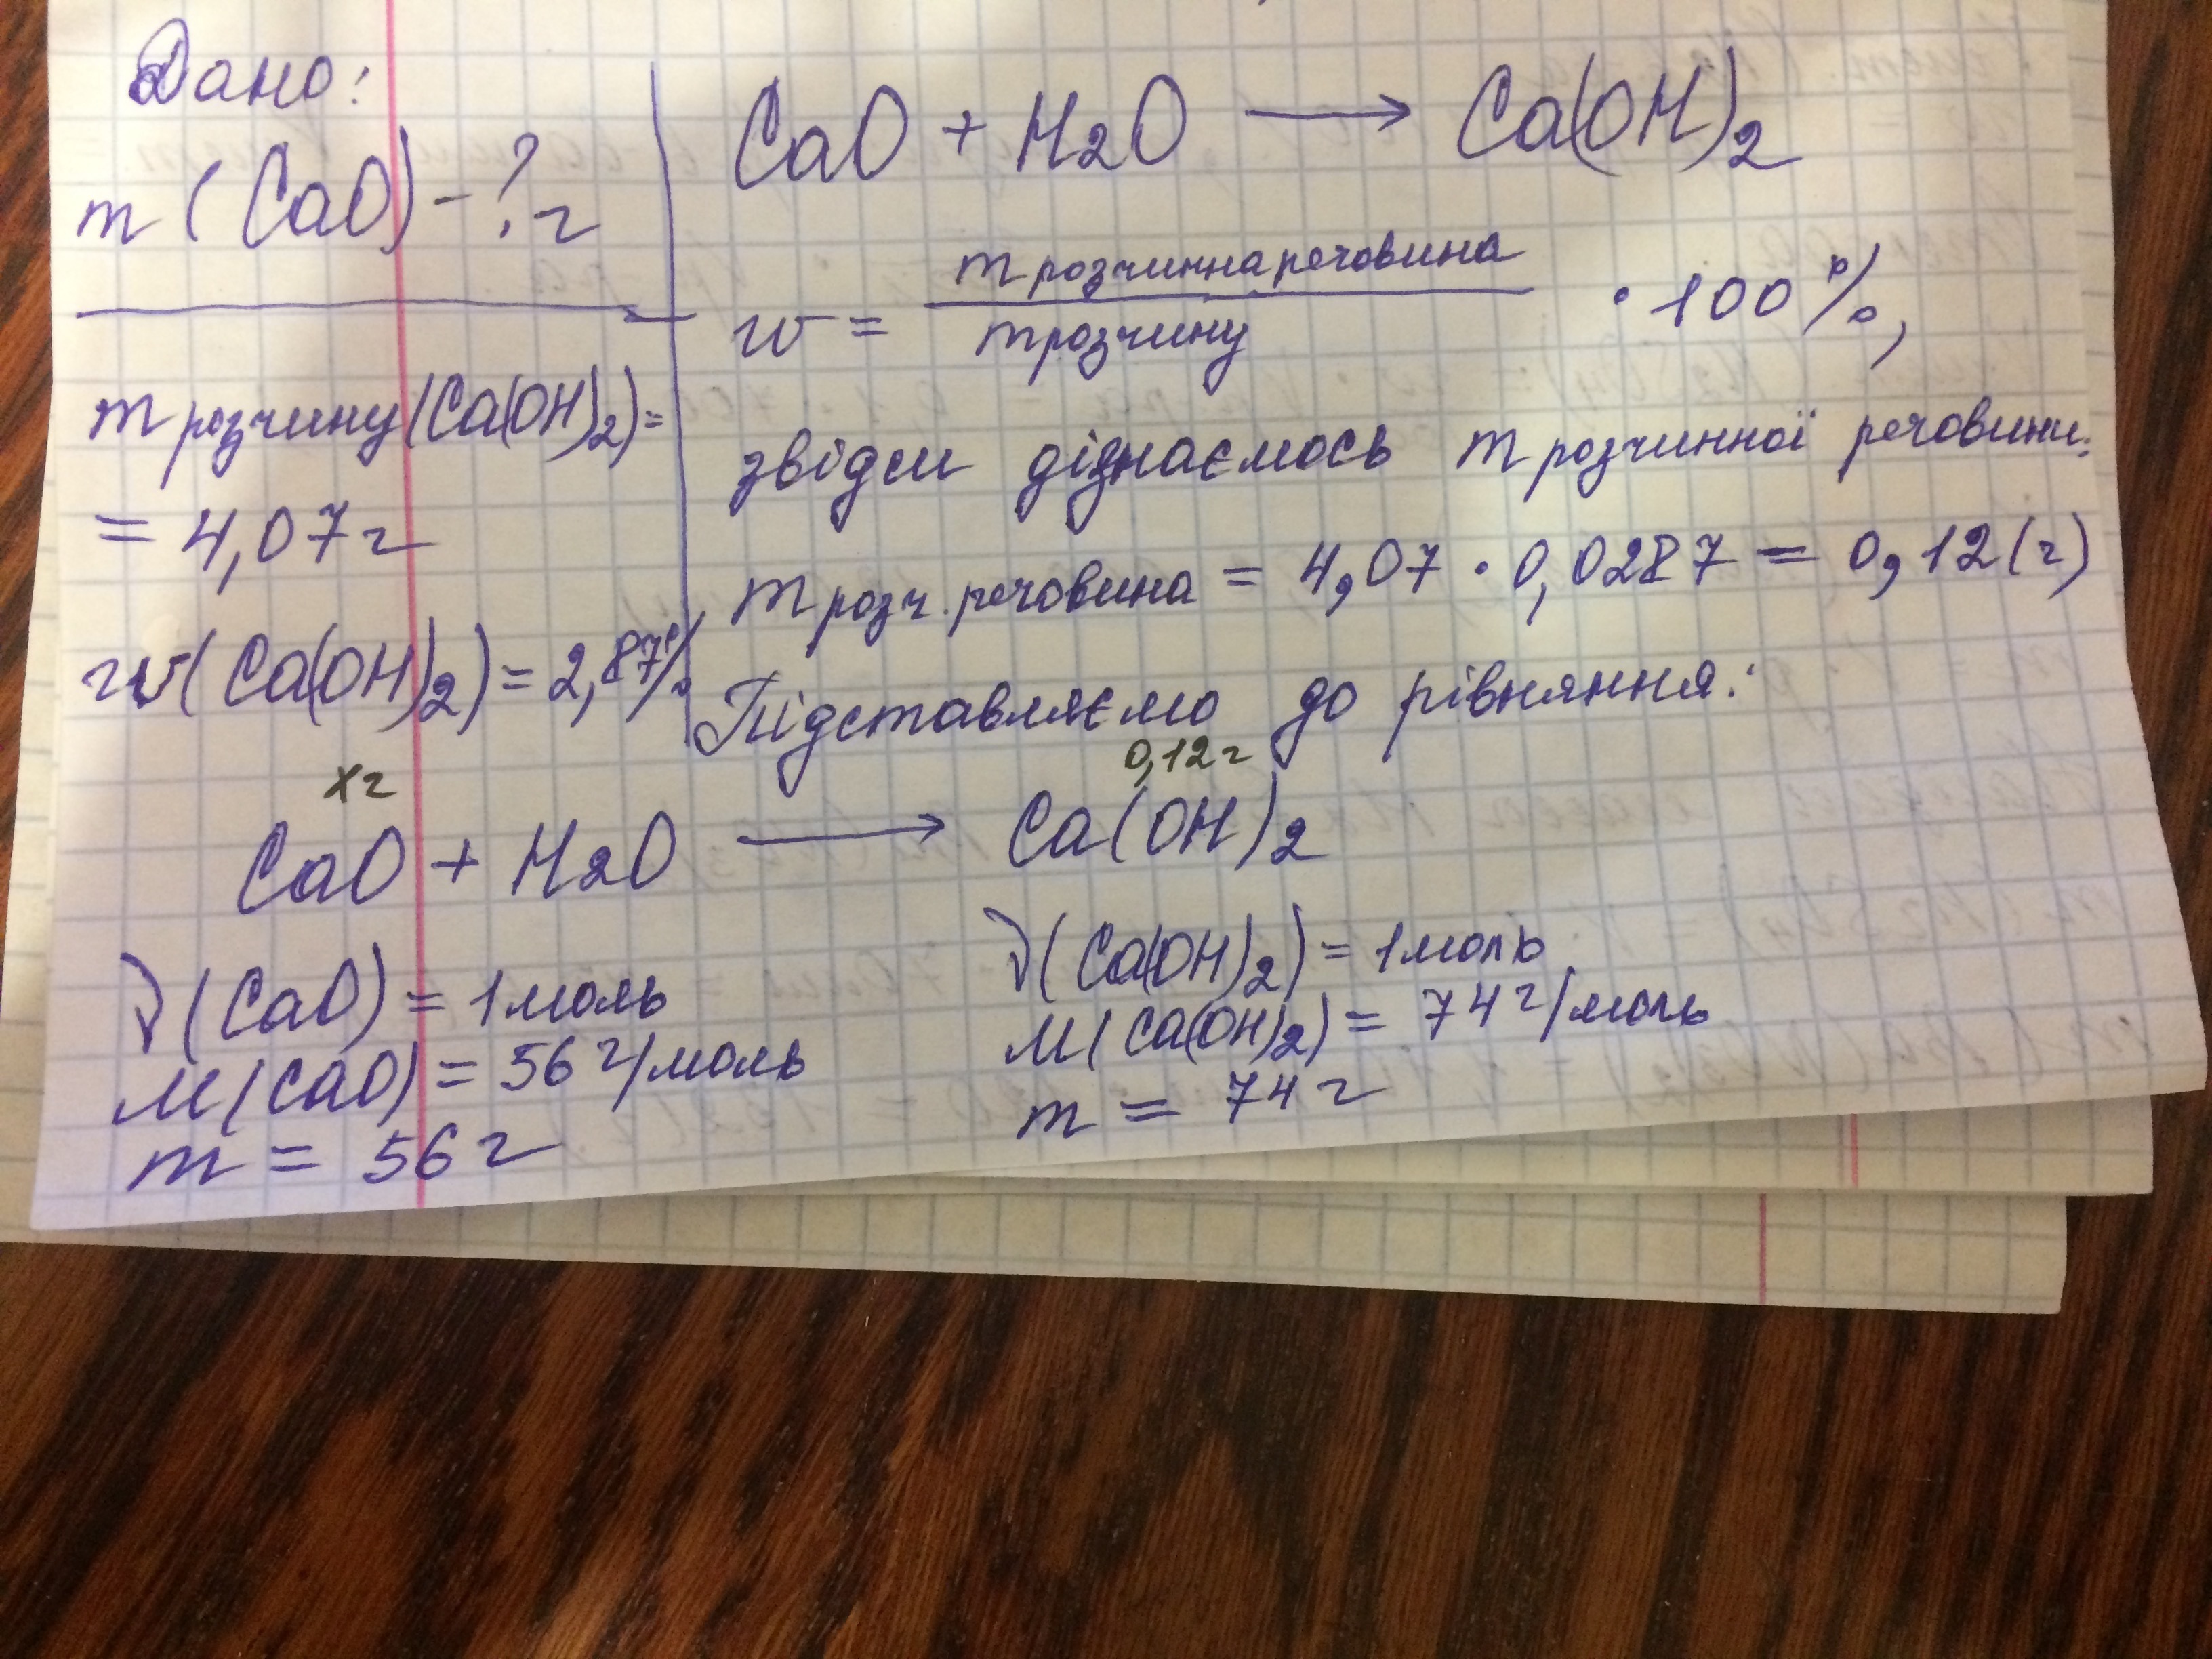 Дано:
m (CaO) - ? г
m розчину (Ca(OH)2) =
= 4,07 г
w (Ca(OH)2) = 2,87%
CaO + H2O → Ca(OH)2
w = m розчинна речовина / m розчину · 100%,
звідси дізнаємось m розчинної речовини:
m розч. речовина = 4,07 · 0,0287 = 0,12 (г)
Підставляємо до рівняння:
x г 0,12 г
CaO + H2O → Ca(OH)2
ν (CaO) = 1 моль
M (CaO) = 56 г/моль
m = 56 г
ν (Ca(OH)2) = 1 моль
M (Ca(OH)2) = 74 г/моль
m = 74 г